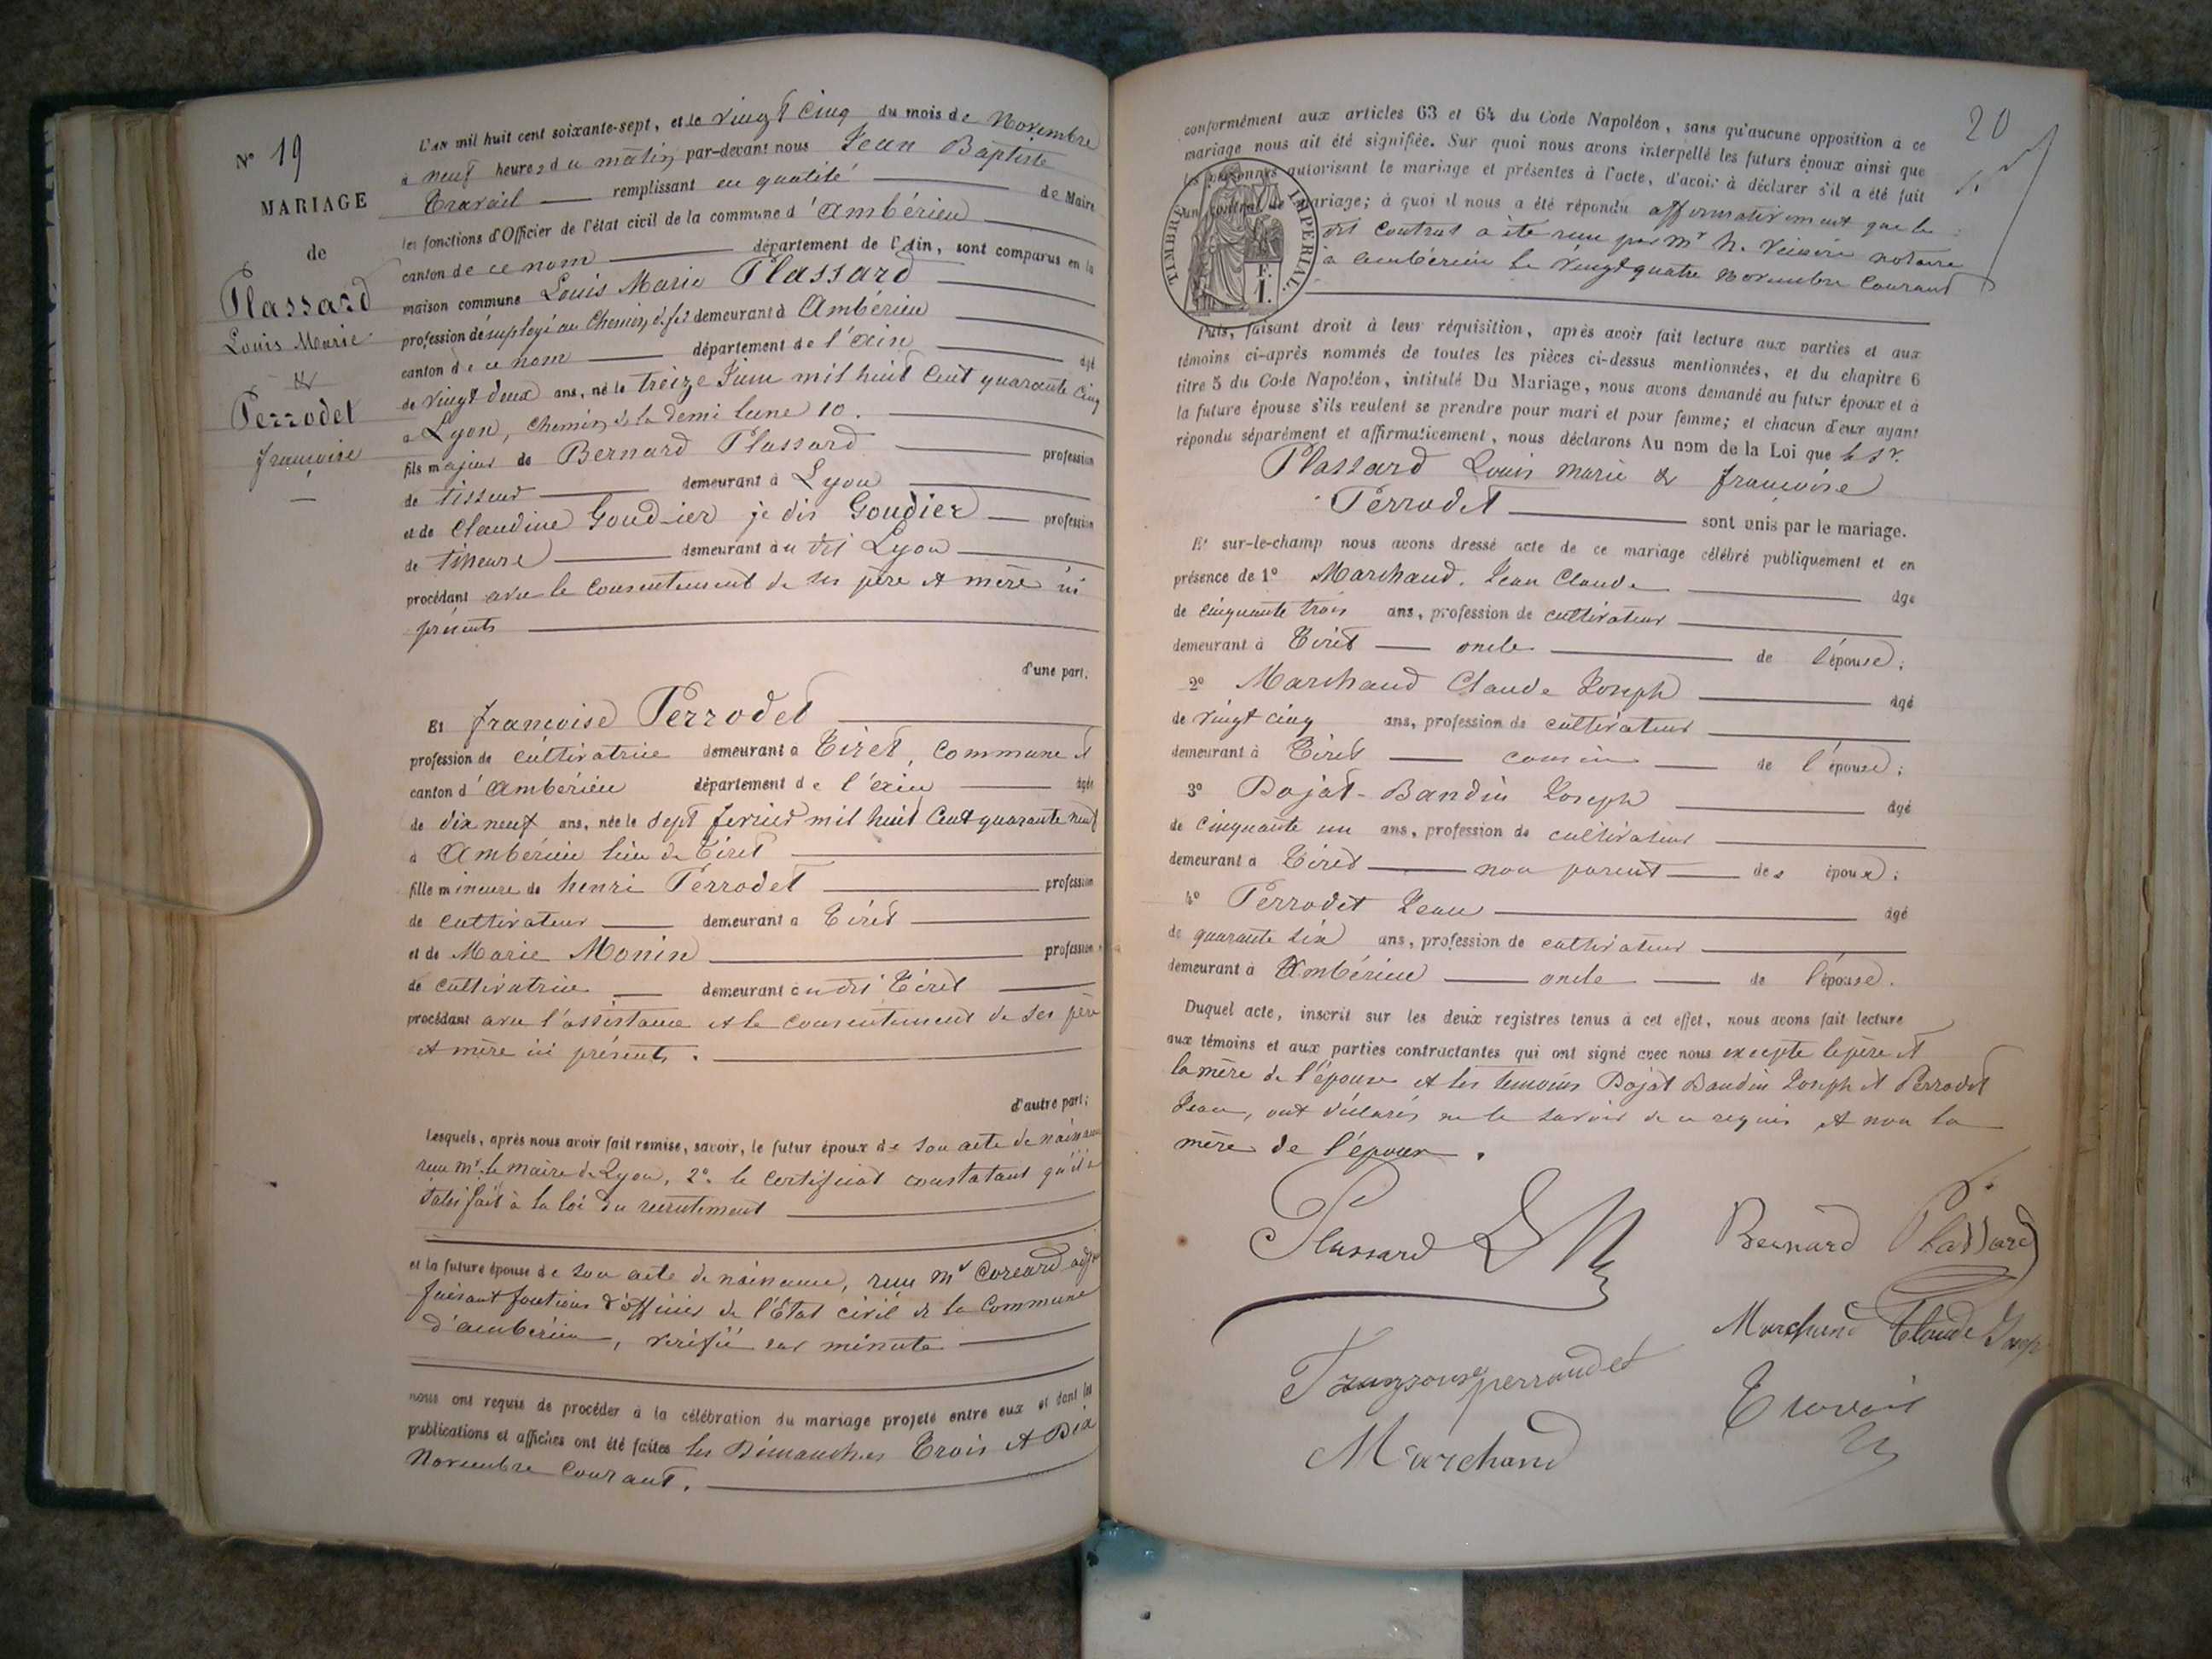 N° 19
MARIAGE
de
Plassard
Louis Marie
&
Perrodet
françoise
L'an mil huit cent soixante-sept, et le vingt cinq du mois de Novembre
à neuf heures du matin par-devant nous Jean Baptiste
Travail remplissant en qualité de Maire
les fonctions d'Officier de l'état civil de la commune d'Ambérieu
canton de ce nom département de l'Ain, sont comparus en la
maison commune Louis Marie Plassard
profession d'employé au Chemin de fer demeurant à Ambérieu
canton de ce nom département de l'ain âgé
de vingt deux ans, né le treize Juin mil huit Cent quarante cinq
à Lyon, chemin de la demi lune 10.
fils majeur de Bernard Plassard profession
de tisseur demeurant à Lyon
et de Claudine Goudier je dis Goudier profession
de demeurant au dit Lyon
procédant avec le consentement de ses père et mère ici
présents
d'une part.
Et françoise Perrodet
profession de cultivatrice demeurant à Tiret, Commune et
canton d'Ambérieu département de l'ain âgée
de dix neuf ans, née le sept fevrier mil huit Cent quarante neuf
à Ambérieu lieu de Tiret
fille mineure de henri Perrodet profession
de cultivateur demeurant à Tiret
et de Marie Monin profession
de cultivatrice demeurant au dit Tiret
procédant avec l'assistance et le consentement de ses père
et mère ici présents.
d'autre part;
Lesquels, après nous avoir fait remise, savoir, le futur époux de son acte de naissance
reçu mr le maire de Lyon, 2° le certificat constatant qu'il a
satisfait à la loi du recrutement
et la future épouse de son acte de naissance, reçu mr
faisant fonctions d'officier de l'Etat civil de la Commune
d'ambérieu, vérifié sur minute
nous ont requis de procéder à la célébration du mariage projeté entre eux et dont les
publications et affiches ont été faites les Dimanches Trois et Dix
Novembre courant.
20
conformément aux articles 63 et 64 du Code Napoléon, sans qu'aucune opposition à ce
mariage nous ait été signifiée. Sur quoi nous avons interpellé les futurs époux ainsi que
les personnes autorisant le mariage et présentes à l'acte, d'avoir à déclarer s'il a été fait
un contrat de mariage; à quoi il nous a été répondu affirmativement que le
dit contrat a été reçu par mr notaire
à ambérieu le vingt quatre Novembre courant
TIMBRE IMPERIAL.
F.
1.
Puis, faisant droit à leur réquisition, après avoir fait lecture aux parties et aux
témoins ci-après nommés de toutes les pièces ci-dessus mentionnées, et du chapitre 6
titre 5 du Code Napoléon, intitulé Du Mariage, nous avons demandé au futur époux et à
la future épouse s'ils veulent se prendre pour mari et pour femme; et chacun d'eux ayant
répondu séparément et affirmativement, nous déclarons Au nom de la Loi que le Sr.
Plassard Louis marie & françoise
Perrodet sont unis par le mariage.
Et sur-le-champ nous avons dressé acte de ce mariage célébré publiquement et en
présence de 1° Marchand Jean Claude âgé
de cinquante trois ans, profession de cultivateur
demeurant à Tiret oncle de l'épouse;
2° Marchand Claude Joseph âgé
de vingt cinq ans, profession de cultivateur
demeurant à Tiret cousin de l'épouse;
3° Bojat-Bandin Joseph âgé
de cinquante un ans, profession de cultivateur
demeurant à Tiret non parent des époux;
4° Perrodet Jean âgé
de quarante six ans, profession de cultivateur
demeurant à Ambérieu oncle de l'épouse.
Duquel acte, inscrit sur les deux registres tenus à cet effet, nous avons fait lecture
aux témoins et aux parties contractantes qui ont signé avec nous excepté le père et
la mère de l'épouse et les temoins Bojat Bandin Joseph et Perrodet
Jean, ont déclarés ne le savoir de ce requis et non la
mère de l'époux.
Plassard L M
Bernard Plassard
Marchand Claude Josep
perraudet
Travail
Marchand